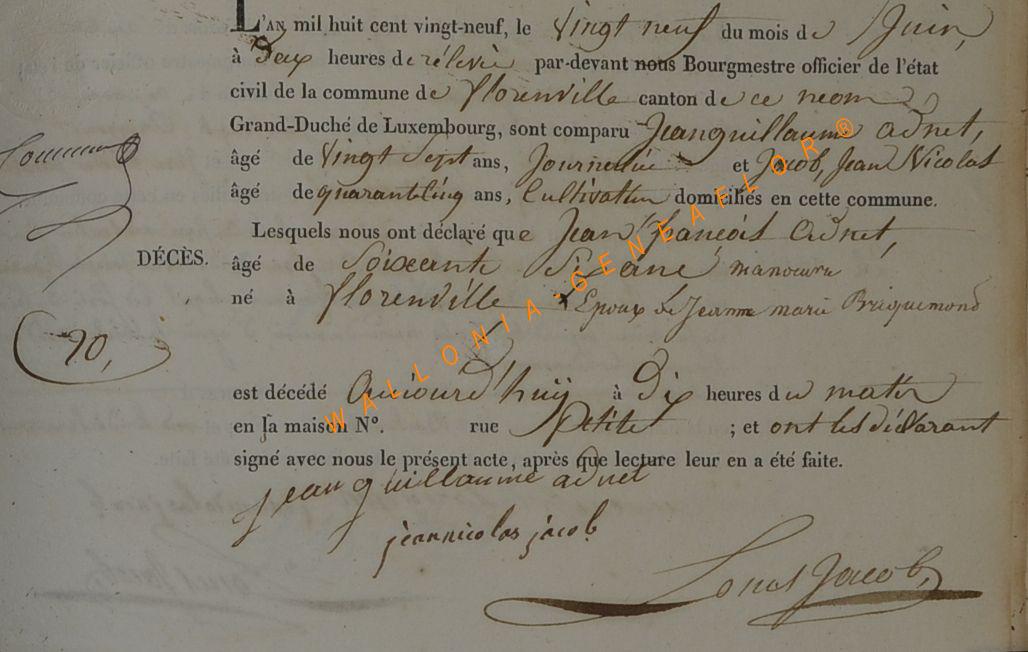 L'AN mil huit cent vingt-neuf, le Vingt neuf du mois de Juin,
à Deux heures de rélévée par-devant nous Bourgmestre officier de l'état
civil de la commune de florenville canton de ce nom
Grand-Duché de Luxembourg, sont comparu Jeanguillaume adnet,
âgé de Vingt Sept ans, Journalié et Jacob, Jean Nicolas
âgé de quarantcinq ans, Cultivateur domiciliés en cette commune.
Lesquels nous ont déclaré que Jean françois adnet,
DÉCÈS.
âgé de Soixante Six ans manoeuvre
né à florenville Epoux de Jeanne marie Bricquemond
90,
est décédé aujourd'huy à Dix heures du matin
en la maison N°. rue Petite ; et ont les déclarant
signé avec nous le présent acte, après que lecture leur en a été faite.
jean guillaume adnet
jeannicolas jacob
Louis Jacob
WALLONIA-GENEAFLOR®